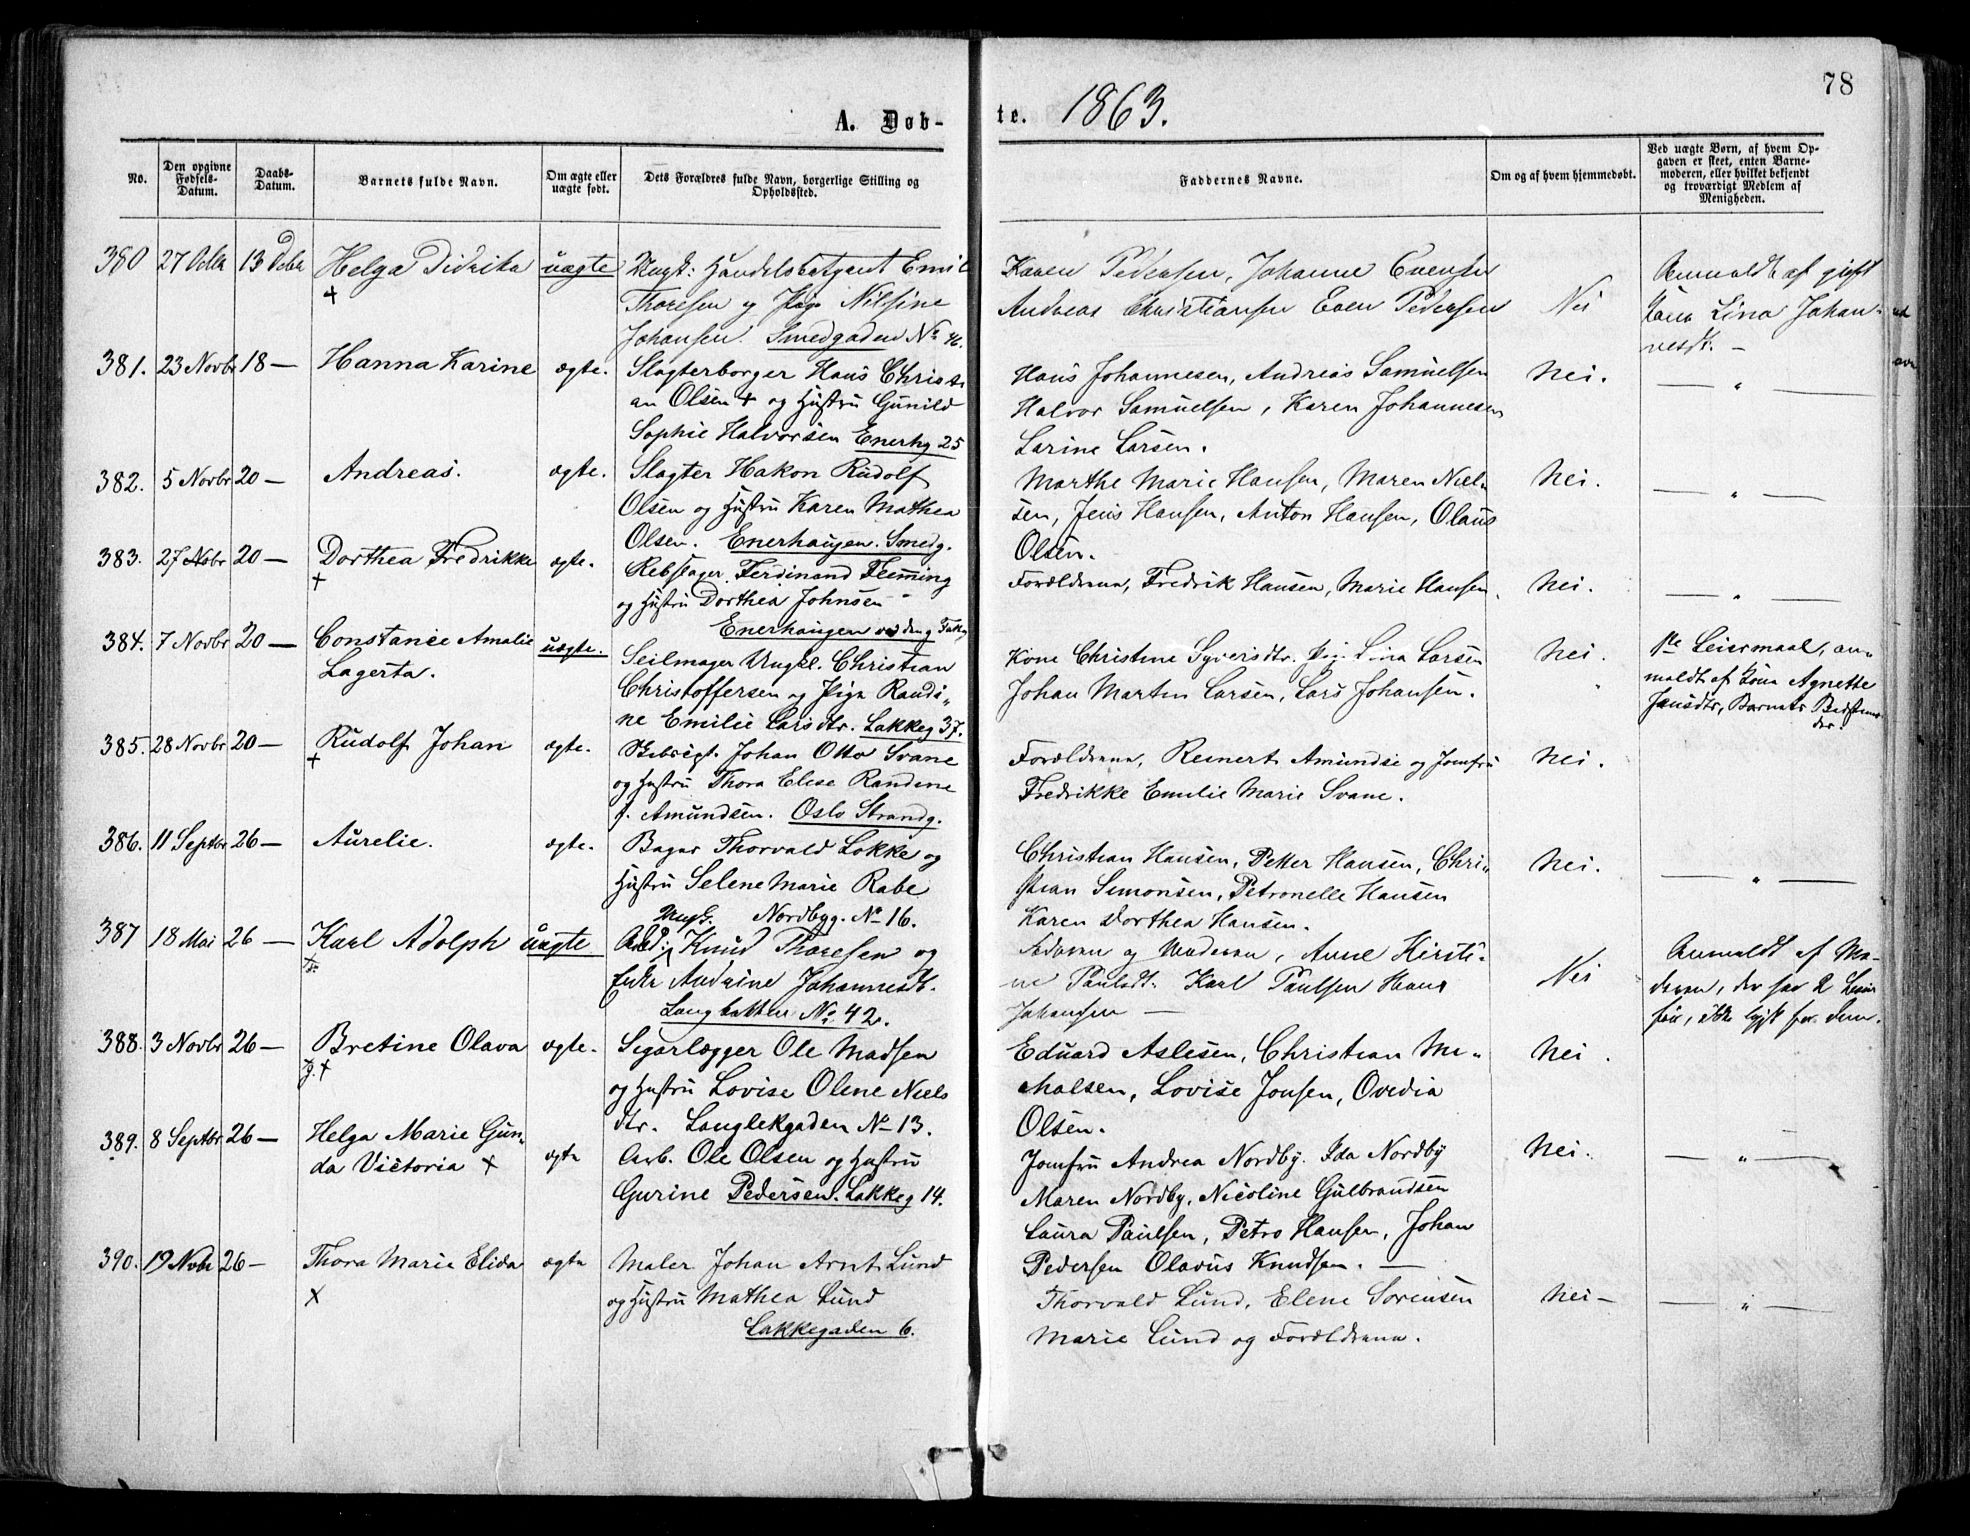 78
A. Døb-
te. 1863.
No.
Den opgivne Fødsels-Datum.
Daabs-Datum.
Barnets fulde Navn.
Om ægte eller uægte født.
Dets Forældres fulde Navn, borgerlige Stilling og Opholdssted.
Faddernes Navne.
Om og af hvem hjemmedøbt.
Ved uægte Børn, af hvem Opgaven er skeet, enten Barnemoderen, eller hvilket bekjendt og troværdigt Medlem af Menigheden.
380 27 Octbr 13 Decbr Helga Didrika uægte Ungk: Handelsbetjent Emil Karen Pedersen, Johanne Evensen Anmeldt af gift
+ Thoresen og Pige Nilsine Andreas Christiansen Even Pedersen Nei Kone Lina Johan-
Johansen. Smedgaden No 46. nesdt. —
381. 23 Novbr 18 — Hanna Karine ægte. Slagterborger Hans Christi Hans Johannesen, Andreas Samuelsen Nei. — " —
an Olsen + og Hustru Gunild Halvor Samuelsen, Karen Johannesen
Sophie Halvorsen Enerhg 25 Larine Larsen.
382. 5 Novbr 20 — Andreas. ægte. Slagter Hakon Rudolf Marthe Marie Hansen, Maren Niel- Nei. — " —
Olsen og Hustru Karen Mathea sen, Jens Hansen, Anton Hansen, Olaus
Olsen. Enerhaugen. Smedg. Olsen.
383. 27 Nobr 20 — Dorthea Fredrikke ægte. Rebslager Ferdinand Flemming Forældrene, Fredrik Hansen, Marie Hansen. Nei. — " —
+ og Hustru Dorthea Johnsen
Enerhaugen
384. 7 Novbr 20 — Constance Amalie uægte. Seilmager Ungkl. Christian Kone Christine Syversdtr. Pig. Lina Larsen Nei. 1ste Leiermaal, an-
Lagerta. Christoffersen og Pige Randi- Johan Martin Larsen, Lars Johansen. meldt af Kone Agnette
ne Emilie Larsdtr. Lakkeg 37. Jensdtr, Barnets Bedstemo
der.
385. 28 Novbr 20 — Rudolf Johan ægte. Johan Otto Svane Forældrene, Reinert Amundse og Jomfru Nei.
+ og Hustru Thora Elise Randene Fredrikke Emilie Marie Svane.
f. Amundsen. Oslo Strandg.
386. 11 Septbr 26 — Aurelie. ægte. Bager Thorvald Løkke og Christian Hansen, Petter Hansen, Chri- Nei. — " —
Hustru Selene Marie Rabe stian Simonsen, Petronelle Hansen
Nordbyg. No 16. Karen Dorthea Hansen.
387 18 Mai 26 — Karl Adolph uægte Ungk. Arbd: Knud Thoresen og Faderen og Moderen, Anne Kirsti- Nei Anmeldt af Mo-
Enke Andrine Johannesdt. ne Paulsdt. Karl Paulsen Hans deren, der har 2 Leier
No 42. Johansen — før, ikke gift før dem.
388. 3 Novbr 26 — Bretine Olava ægte. Sigarlægger Ole Madsen Eduard Aslesen, Christian Mi- Nei.
g. + og Hustru Lovise Olene Niels chalsen, Lovise Jonsen, Ovedia
dtr. Langlekgaden No 13. Olsen.
389. 8 Septbr 26 — Helga Marie Gun- ægte Arb. Ole Olsen og Hustru Jomfru Andrea Nordby. Ida Nordby Nei. — " —
da Victoria + Gurine Pedersen. Lakkeg 14. Maren Nordby, Nicoline Gulbrandsen
Laura Paulsen, Petro Hansen, Johan
Pedersen Olavus Knudsen. —
390. 19 Nobr 26 — Thora Marie Elida ægte Maler Johan Arnt Lund Thorvald Lund, Elene Sørensen Nei — — " —
+ og Hustru Mathea Lund Marie Lund og Forældrene.
Lakkegaden 6.